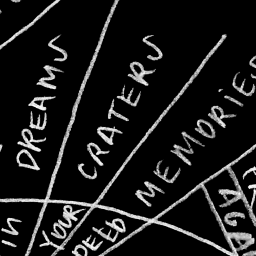 DREAMS
CRATERS
MEMORIES
in
YOUR
DEED
AGA